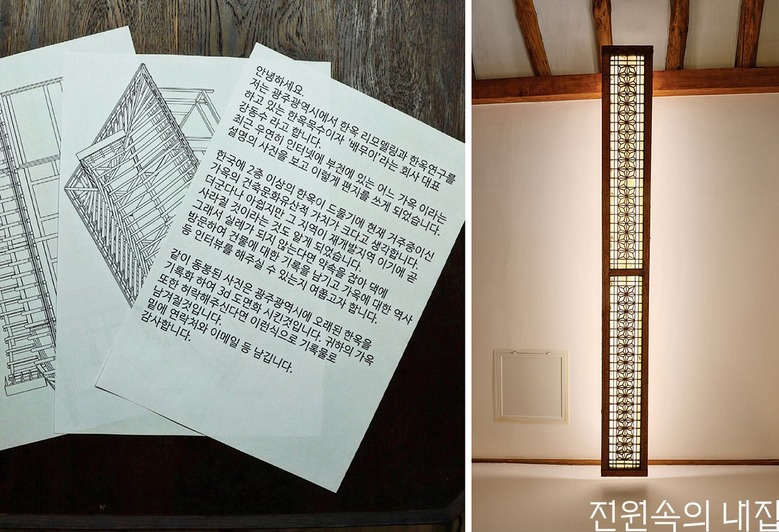 안녕하세요.
저는 광주광역시에서 한옥 리모델링과 한옥연구를
하고 있는 한옥목수이자 '배무이'라는 회사 대표
강동수 라고 합니다.
최근 우연히 인터넷에 부천에 있는 어느 가옥 이라는
설명의 사진을 보고 이렇게 편지를 쓰게 되었습니다.
한국에 2층 이상의 한옥이 드물기에 현재 거주중이신
가옥의 건축문화유산적 가치가 크다고 생각합니다.
더군다나 아쉽지만 그 지역이 재개발지역 이기에 곧
사라질 것이라는 것도 알게 되었습니다.
그래서 실례가 되지 않는다면 약속을 잡아 댁에
방문하여 건물에 대한 기록을 남기고 가옥에 대한 역사
등 인터뷰를 해주실 수 있는지 여쭙고자 합니다.
같이 동봉된 사진은 광주광역시에 오래된 한옥을
기록화 하여 3d 도면화 시킨것입니다. 귀하의 가옥
또한 허락해주신다면 이런식으로 기록물로
남겨질것입니다.
밑에 연락처와 이메일 등 남깁니다.
감사합니다.
전원속의 내집